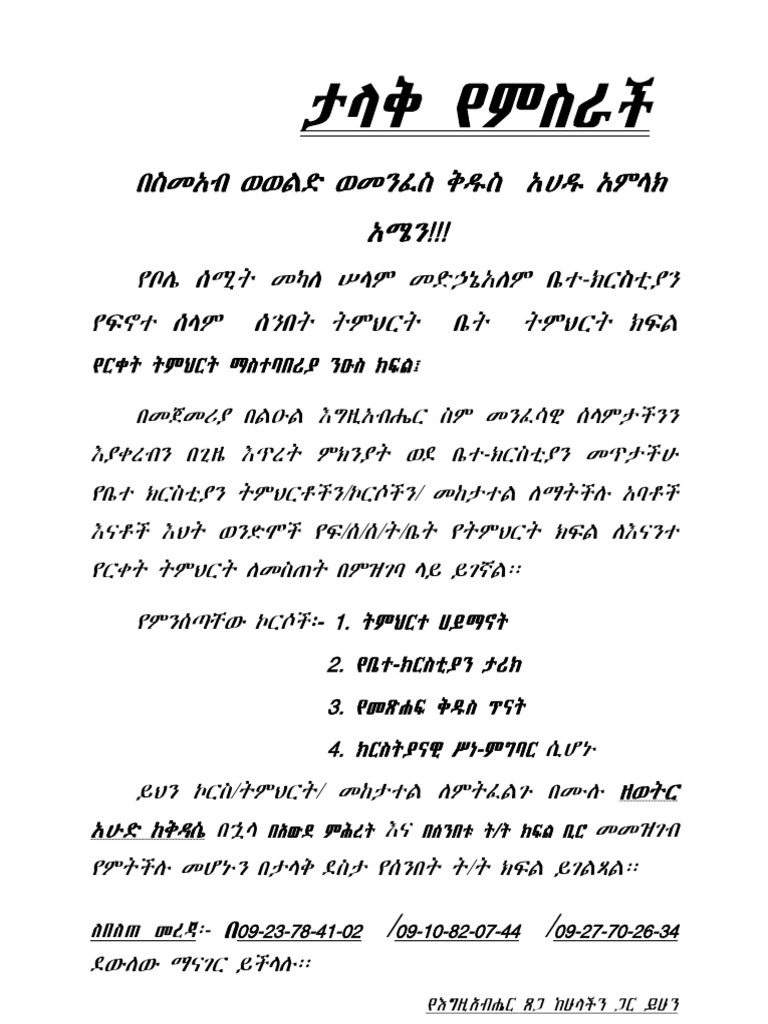 ታላቅ የምስራች
በስመአብ ወወልድ ወመንፈስ ቅዱስ አሀዱ አምላክ
አሜን!!!
የቦሌ ሰሚት መካለ ሠላም መድኃኔአለም ቤተ-ክርስቲያን
የፍኖተ ሰላም ሰንበት ትምህርት ቤት ትምህርት ክፍል
የርቀት ትምህርት ማስተባበሪያ ንዑስ ክፍል፤
በመጀመሪያ በልዑል እግዚአብሔር ስም መንፈሳዊ ሰላምታችንን
እያቀረብን በጊዜ እጥረት ምክንያት ወደ ቤተ-ክርስቲያን መጥታችሁ
የቤተ ክርስቲያን ትምህርቶችን/ኮርሶችን/ መከታተል ለማትችሉ አባቶች
እናቶች እህት ወንድሞች የፍ/ሰ/ሰ/ት/ቤት የትምህርት ክፍል ለእናንተ
የርቀት ትምህርት ለመስጠት በምዝገባ ላይ ይገኛል፡፡
የምንሰጣቸው ኮርሶች፡- 1. ትምህርተ ሀይማኖት
2. የቤተ-ክርስቲያን ታሪክ
3. የመጽሐፍ ቅዱስ ጥናት
4. ክርስትያናዊ ሥነ-ምግባር ሲሆኑ
ይህን ኮርስ/ትምህርት/ መከታተል ለምትፈልጉ በሙሉ ዘወትር
አሁድ ከቅዳሴ በኋላ በአውደ ምሕረት እና በሰንበቱ ት/ት ክፍል ቢሮ መመዝገብ
የምትችሉ መሆኑን በታላቅ ደስታ የሰንበት ት/ት ክፍል ይገልጻል፡፡
ለበለጠ መረጃ፡- በ09-23-78-41-02 /09-10-82-07-44 /09-27-70-26-34
ደውለው ማናገር ይችላሉ፡፡
የእግዚአብሔር ጸጋ ከሁላችን ጋር ይሁን